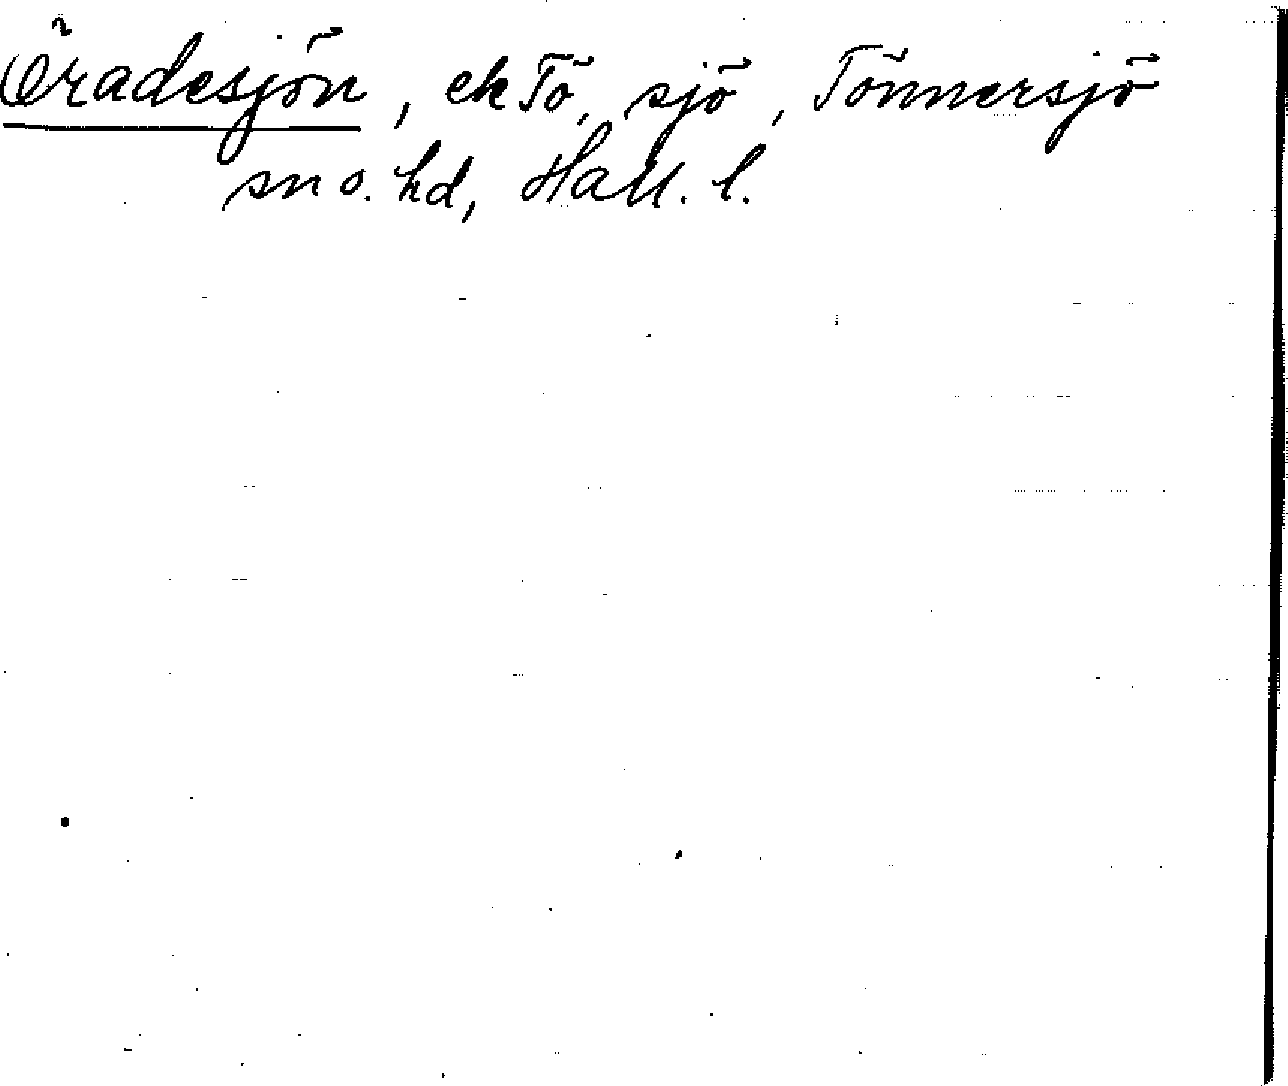 Öradesjön, ek Tö, sjö, Tönnersjö
sn o. hd, Hall. l.